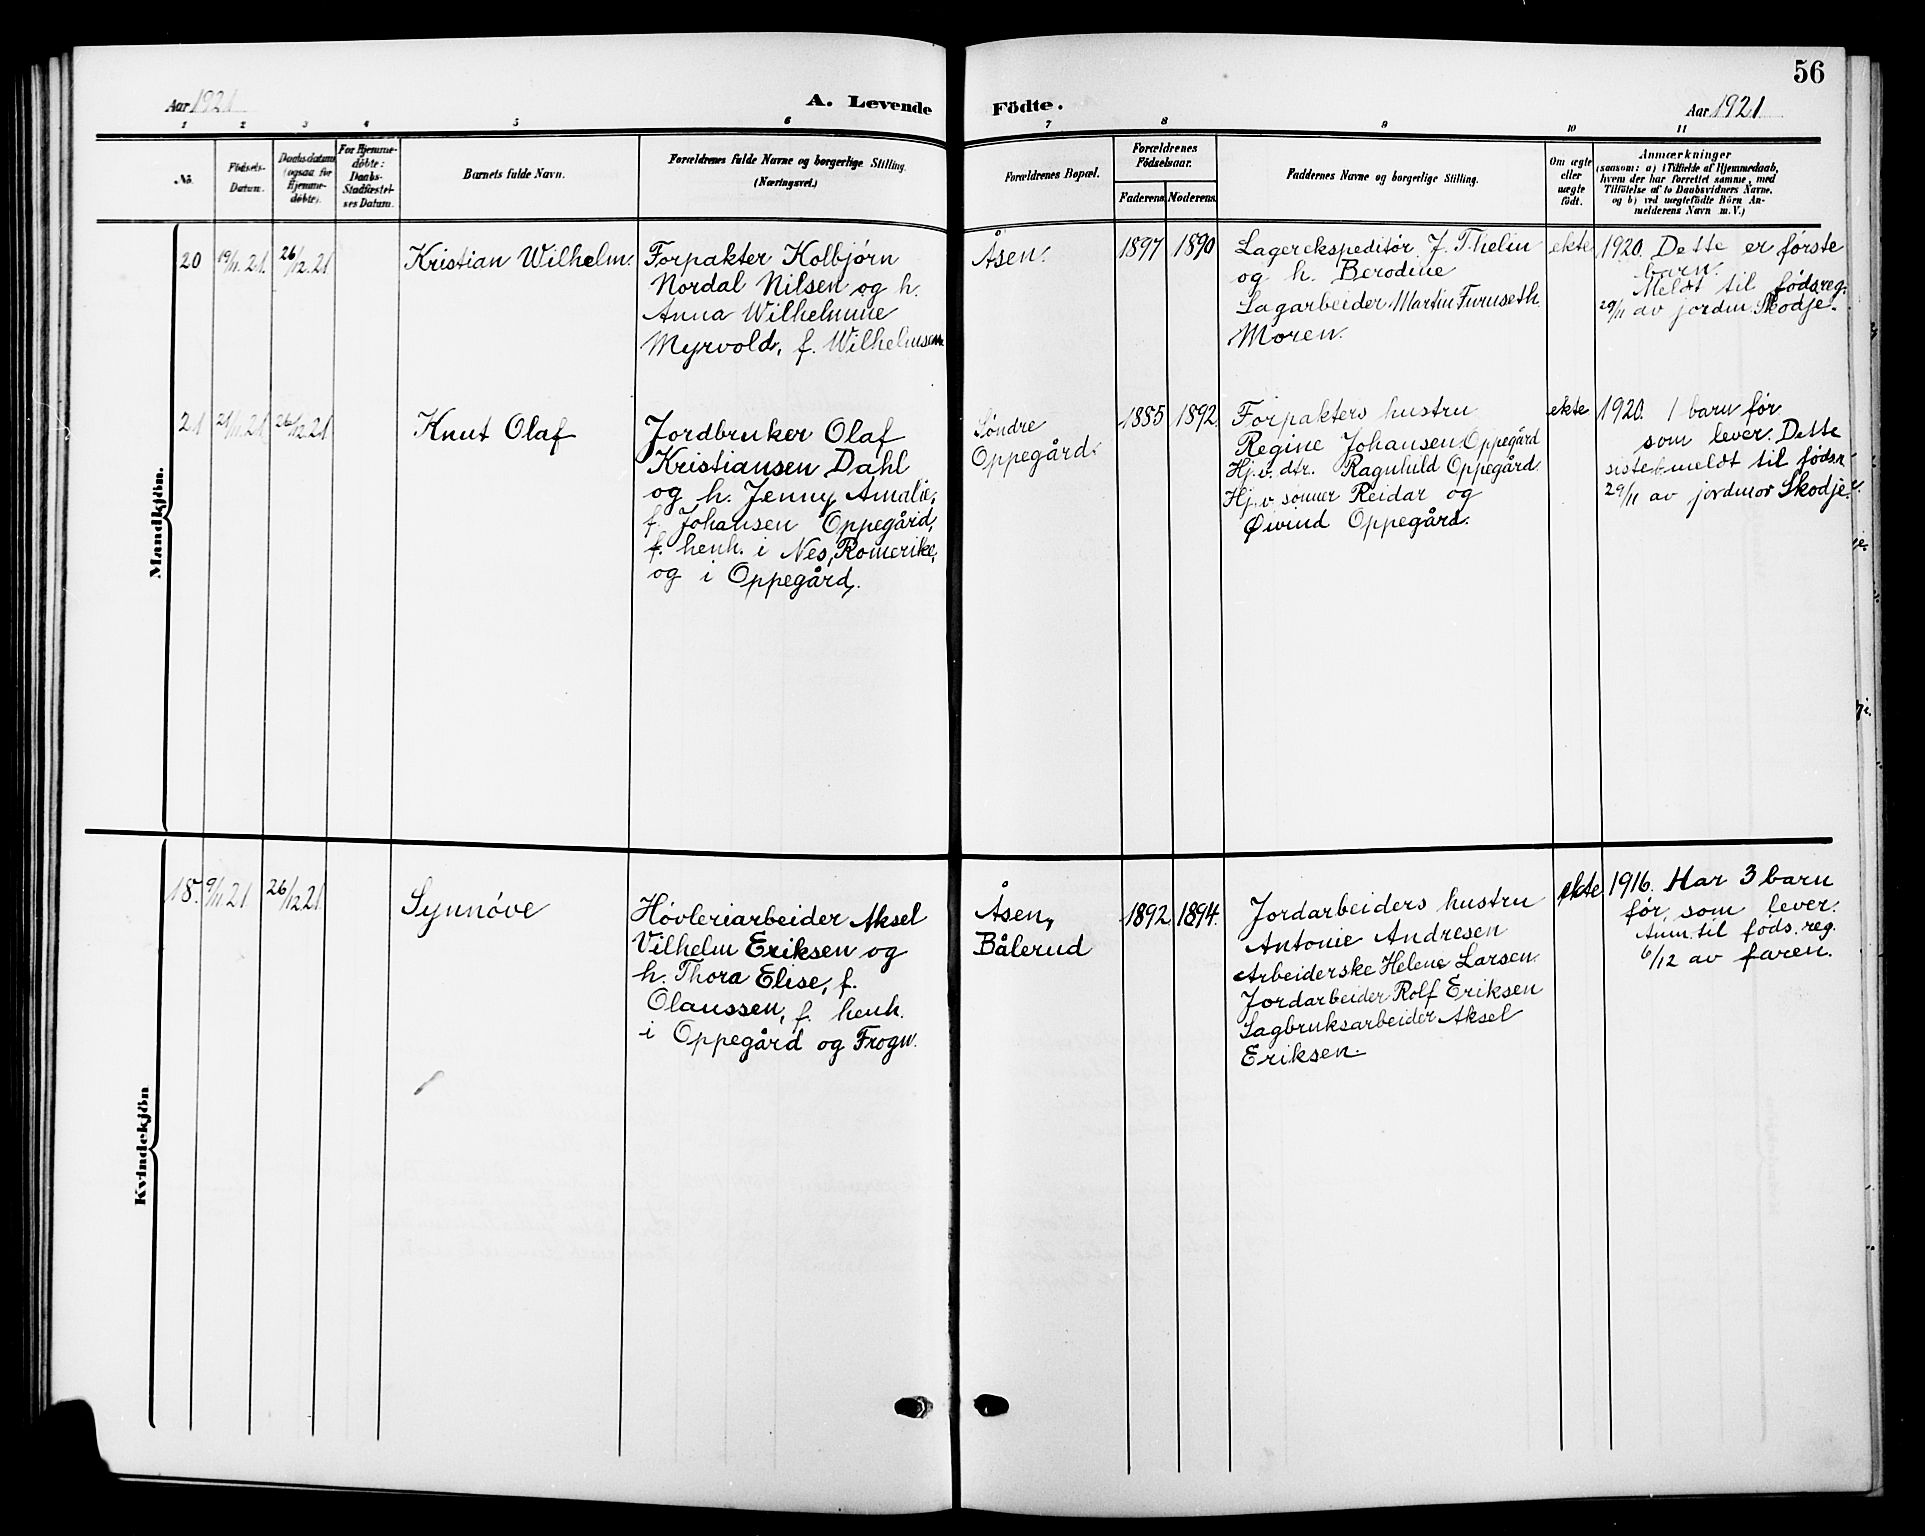 56
Aar 1921
A. Levende Födte.
Aar 1921
1 2 3 4 5 6 7 8 9 10 11
No.
Födsels-
Datum.
Daabsdatum
(ogsaa for
Hjemme-
döbte).
For Hjemme-
döbte:
Daabs-
Stadfæstel-
ses Datum.
Barnets fulde Navn.
Forældrenes fulde Navne og borgerlige Stilling.
(Næringsvei.)
Forældrenes Bopæl.
Forældrenes
Födselsaar.
Faderens Moderens.
Faddernes Navne og borgerlige Stilling.
Om ægte
eller
uægte
födt.
Anmærkninger
(saasom: a) i Tilfælde af Hjemmedaab,
hvem der har forrettet samme, med
Tilföielse af to Daabsvidners Navne,
og b) ved uægtefödte Börn An-
melderens Navn m. V.)
Mandkjön.
20
19/11.21.
26/12.21
Kristian Wilhelm.
Forpakter Kolbjørn
Nordal Nilsen og h.
Anna Wilhelmine
Myrvold, f. Wilhelmsen
Åsen.
1897
1890
Lagerekspeditør J. Thelin
og h. Berodine
Sagarbeider Martin Furuseth
Moren.
ekte
1920. Dette er første
barn.
Meldt til fødsreg.
29/11 av jordm. Skodje.
21
21/11.21
26/12.21
Knut Olaf
Jordbruker Olaf
Kristiansen Dahl
og h. Jenny Amalie,
f. Johansen Oppegård,
f. henh. i Nes, Romerike,
og i Oppegård.
Søndre
Oppegård.
1885
1892
Forpakters hustru
Regine Johansen Oppegård
Hj.v. dtr. Ragnhild Oppegård
Hj.v. sønner Reidar og
Øivind Oppegård.
ekte
1920. 1 barn før
som lever. Dette
siste meldt til fødsr.
29/11 av jordmor Skodje.
Kvindekjön
18.
9/11 21
26/12 21
Synnøve
Høvleriarbeider Aksel
Vilhelm Eriksen og
h. Thora Elise, f.
Olaussen, f. henh.
i Oppegård og Frogn.
Åsen,
Bålerud
1892
1894.
Jordarbeiders hustru
Antonie Andresen
Arbeiderske Helene Larsen
Jordarbeider Rolf Eriksen
Sagbruksarbeider Aksel
Eriksen.
ekte
1916. Har 3 barn
før, som lever.
Anm. til føds.reg.
6/12 av faren.